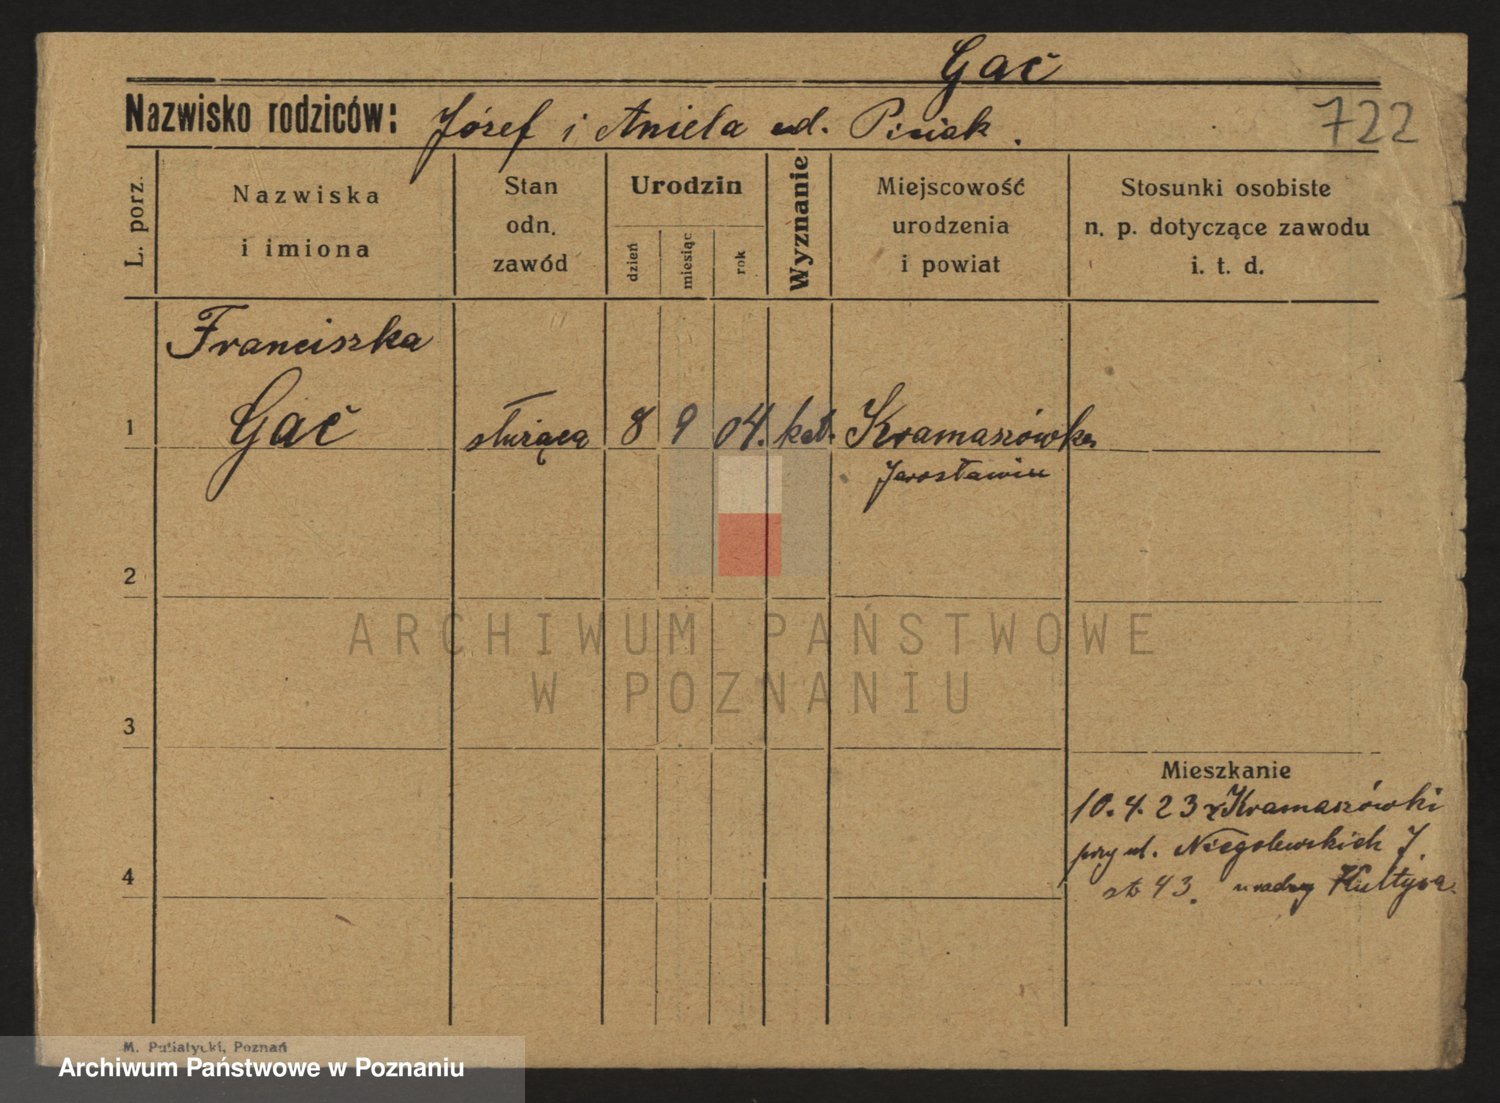 Gać
Nazwisko rodziców: Józef i Aniela
722
L. porz.
Nazwiska
i imiona
Stan
odn.
zawód
Urodzin
dzień
miesiąc
rok
Wyznanie
Miejscowość
urodzenia
i powiat
Stosunki osobiste
n. p. dotyczące zawodu
i. t. d.
Franciszka
1 Gać służąca 8 9 04. kat. Kramaszówka
Jarosławiu
2
3
4
Mieszkanie
10.4.23 z Kramaszówki
przy ul. Niegolewskich 7
43.
M. Putiatycki, Poznań
ARCHIWUM PAŃSTWOWE
W POZNANIU
Archiwum Państwowe w Poznaniu